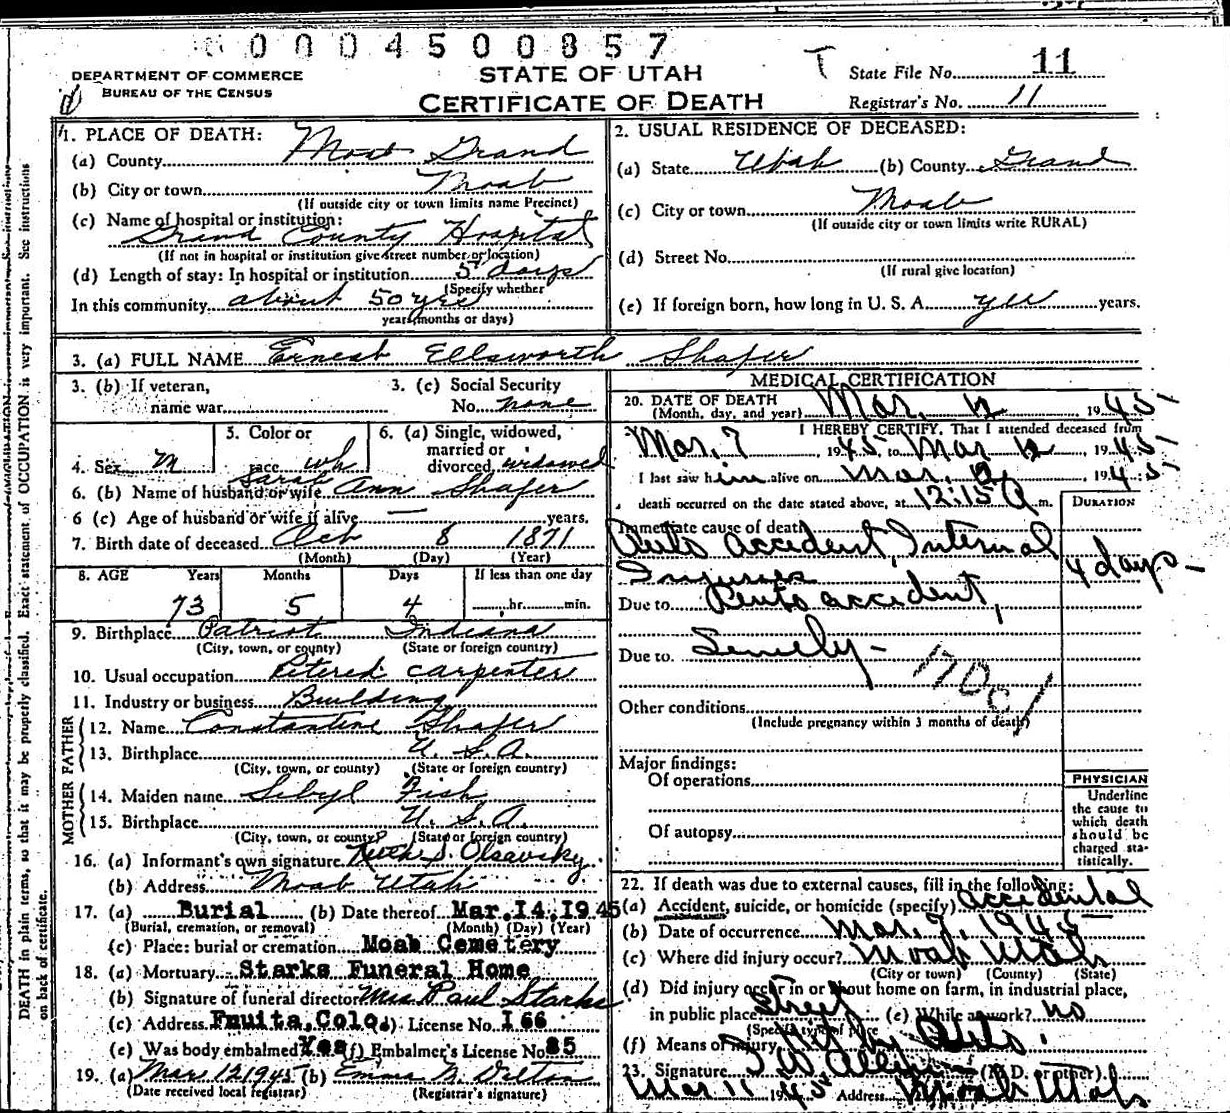 0 0 0 4 5 0 0 8 5 7
DEPARTMENT OF COMMERCE
BUREAU OF THE CENSUS
STATE OF UTAH
CERTIFICATE OF DEATH
T
State File No. 11
Registrar's No. 11
1. PLACE OF DEATH:
(a) County Grand
(b) City or town Moab
(If outside city or town limits name Precinct)
(c) Name of hospital or institution:
Grand County Hospital
(If not in hospital or institution give street number or location)
(d) Length of stay: In hospital or institution 5 days
(Specify whether
In this community about 50 yrs
years, months or days)
2. USUAL RESIDENCE OF DECEASED:
(a) State Utah (b) County Grand
(c) City or town Moab
(If outside city or town limits write RURAL)
(d) Street No.
(If rural give location)
(e) If foreign born, how long in U. S. A. years.
3. (a) FULL NAME Ernest Ellsworth Shafer
3. (b) If veteran,
name war
3. (c) Social Security
No. none
4. Sex M
5. Color or
race wh
6. (a) Single, widowed,
married or
divorced widowed
6. (b) Name of husband or wife Sarah Ann Shafer
6 (c) Age of husband or wife if alive — years.
7. Birth date of deceased Oct 8 1871
(Month) (Day) (Year)
8. AGE Years Months Days If less than one day
73 5 4 hr. min.
9. Birthplace Patriot Indiana
(City, town, or county) (State or foreign country)
10. Usual occupation Retered carpenter
11. Industry or business Building
FATHER
12. Name Constantine Shafer
13. Birthplace U. S. A.
(City, town, or county) (State or foreign country)
MOTHER
14. Maiden name Sibyl Fish
15. Birthplace U. S. A.
(City, town, or county) (State or foreign country)
16. (a) Informant's own signature S. Olsavsky
(b) Address Moab Utah
17. (a) Burial (b) Date thereof Mar. 14, 1945
(Burial, cremation, or removal) (Month) (Day) (Year)
(c) Place: burial or cremation Moab Cemetery
18. (a) Mortuary Starks Funeral Home
(b) Signature of funeral director Mrs Paul Starks
(c) Address Fruita, Colo. (d) License No. I 66
(e) Was body embalmed Yes (f) Embalmer's License No. 85
19. (a) Mar 12 1945 (b) Emma
(Date received local registrar) (Registrar's signature)
MEDICAL CERTIFICATION
20. DATE OF DEATH
(Month, day, and year) Mar. 12, 1945
I HEREBY CERTIFY, That I attended deceased from
Mar. 7, 1945 to Mar 12, 1945
I last saw him alive on Mar. 1945
death occurred on the date stated above, at 12:15 A m.
DURATION
Immediate cause of death
Auto accident, Internal
Injuries 4 days
Due to Auto accident,
Due to
Other conditions
(Include pregnancy within 3 months of death)
Major findings:
Of operations
Of autopsy
PHYSICIAN
Underline
the cause to
which death
should be
charged sta-
tistically.
22. If death was due to external causes, fill in the following:
(a) Accident, suicide, or homicide (specify) accidental
(b) Date of occurrence Mar. 7, 1945
(c) Where did injury occur? Moab Utah
(City or town) (County) (State)
(d) Did injury occur in or about home on farm, in industrial place,
in public place Street (e) While at work? no
(Specify type of place
(f) Means of injury by Auto.
23. Signature (M. D. or other)
1945 Address Moab Utah
DEATH in plain terms, so that it may be properly classified. Exact statement of OCCUPATION is very important. See instructions
on back of certificate.